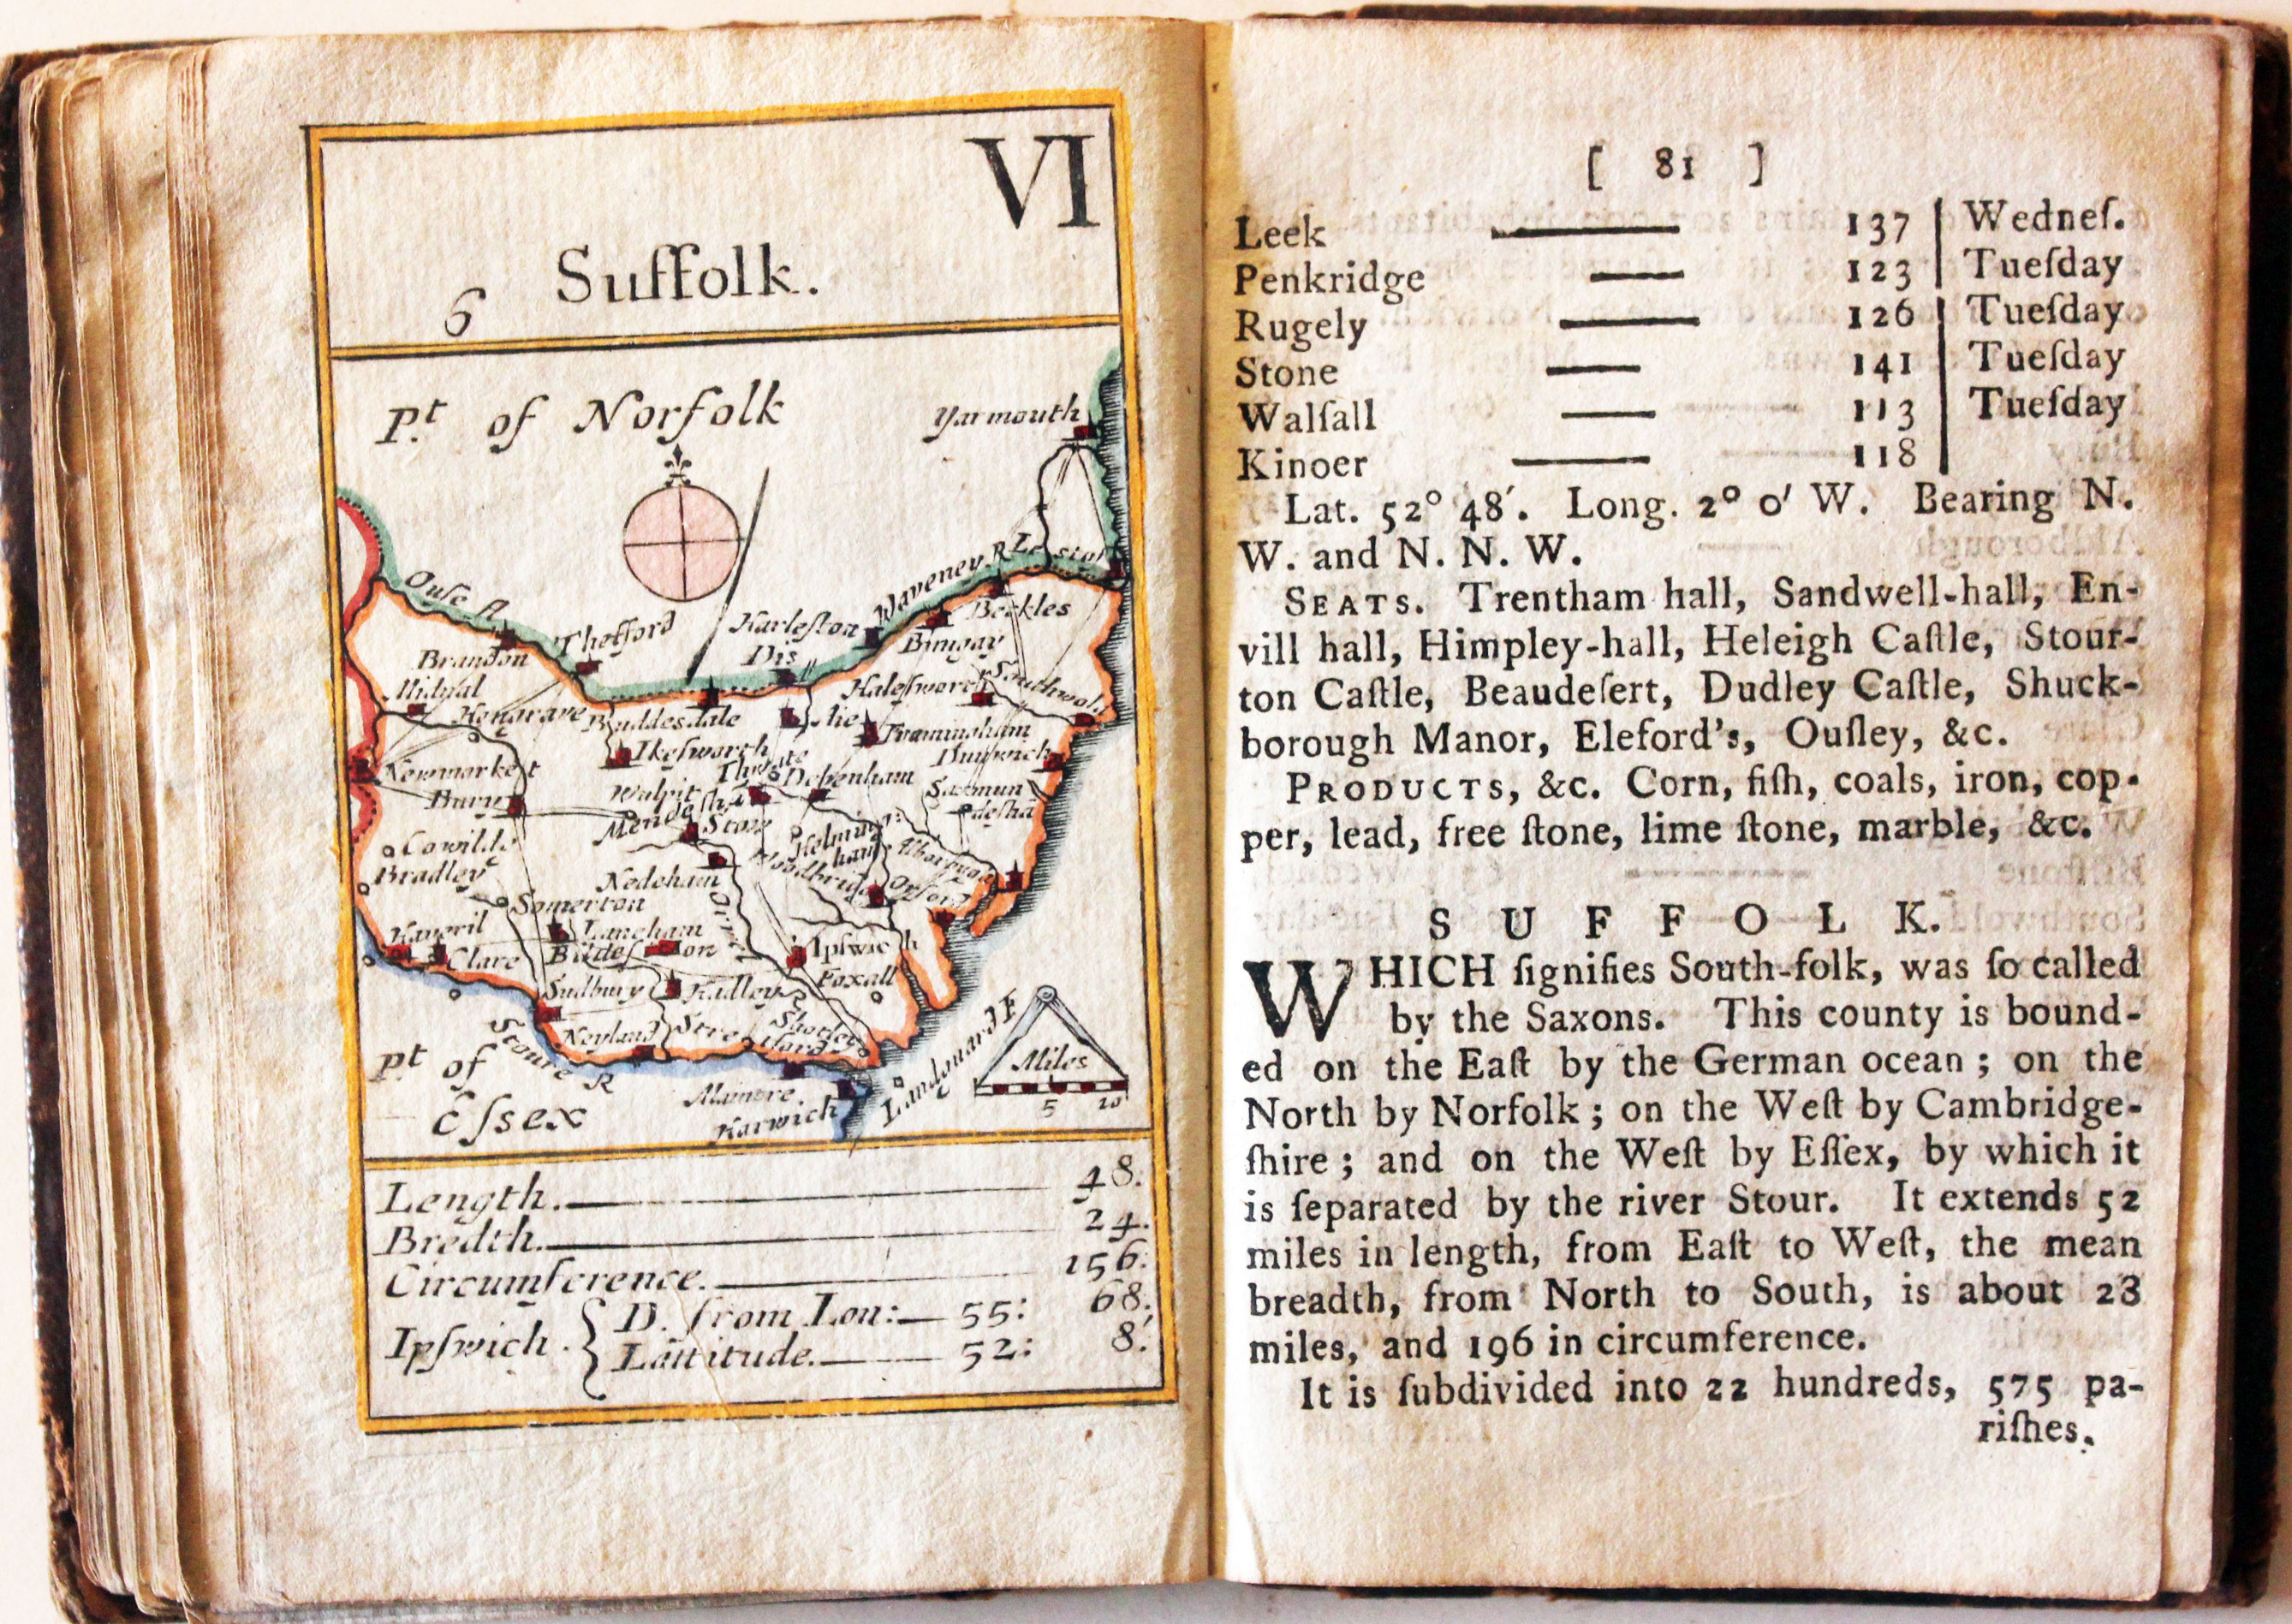 VI
6 Suffolk.
Pt. of Norfolk
Yarmouth
Ouse R
Waveney. R
Thetford
Harleſton
Beckles
Brandon
Dis
Bungay
Halesworth
Southwold
Hengrave
Buddesdale
Framingham
Ikesworth
Newmarket
Debenham
Bury
Walpit
Saxmun
desha
Stow
Bradley
Nedeham
Woodbridg
Orford
Somerton
Clare
Ipſwich
Foxall
Sudbury
Hadley
Neyland
Pt of
Stoure R
Eſsex
Harwich
Landguard F
Miles
5 10
Length. 48.
Bredth. 24.
Circumference. 156.
Ipſwich. { D. from Lon: 55: 68.
Lattitude. 52: 8.
[ 81 ]
Leek 137 Wedneſ.
Penkridge 123 Tueſday
Rugely 126 Tueſday
Stone 141 Tueſday
Walſall 113 Tueſday
Kinoer 118
Lat. 52° 48′. Long. 2° 0′ W. Bearing N.
W. and N. N. W.
SEATS. Trentham hall, Sandwell-hall, En-
vill hall, Himpley-hall, Heleigh Caſtle, Stour-
ton Caſtle, Beaudeſert, Dudley Caſtle, Shuck-
borough Manor, Eleford's, Ouſley, &c.
PRODUCTS, &c. Corn, fiſh, coals, iron, cop-
per, lead, free ſtone, lime ſtone, marble, &c.
SUFFOLK.
WHICH ſignifies South-folk, was ſo called
by the Saxons. This county is bound-
ed on the Eaſt by the German ocean; on the
North by Norfolk; on the Weſt by Cambridge-
ſhire; and on the Weſt by Eſſex, by which it
is ſeparated by the river Stour. It extends 52
miles in length, from Eaſt to Weſt, the mean
breadth, from North to South, is about 28
miles, and 196 in circumference.
It is ſubdivided into 22 hundreds, 575 pa-
riſhes.